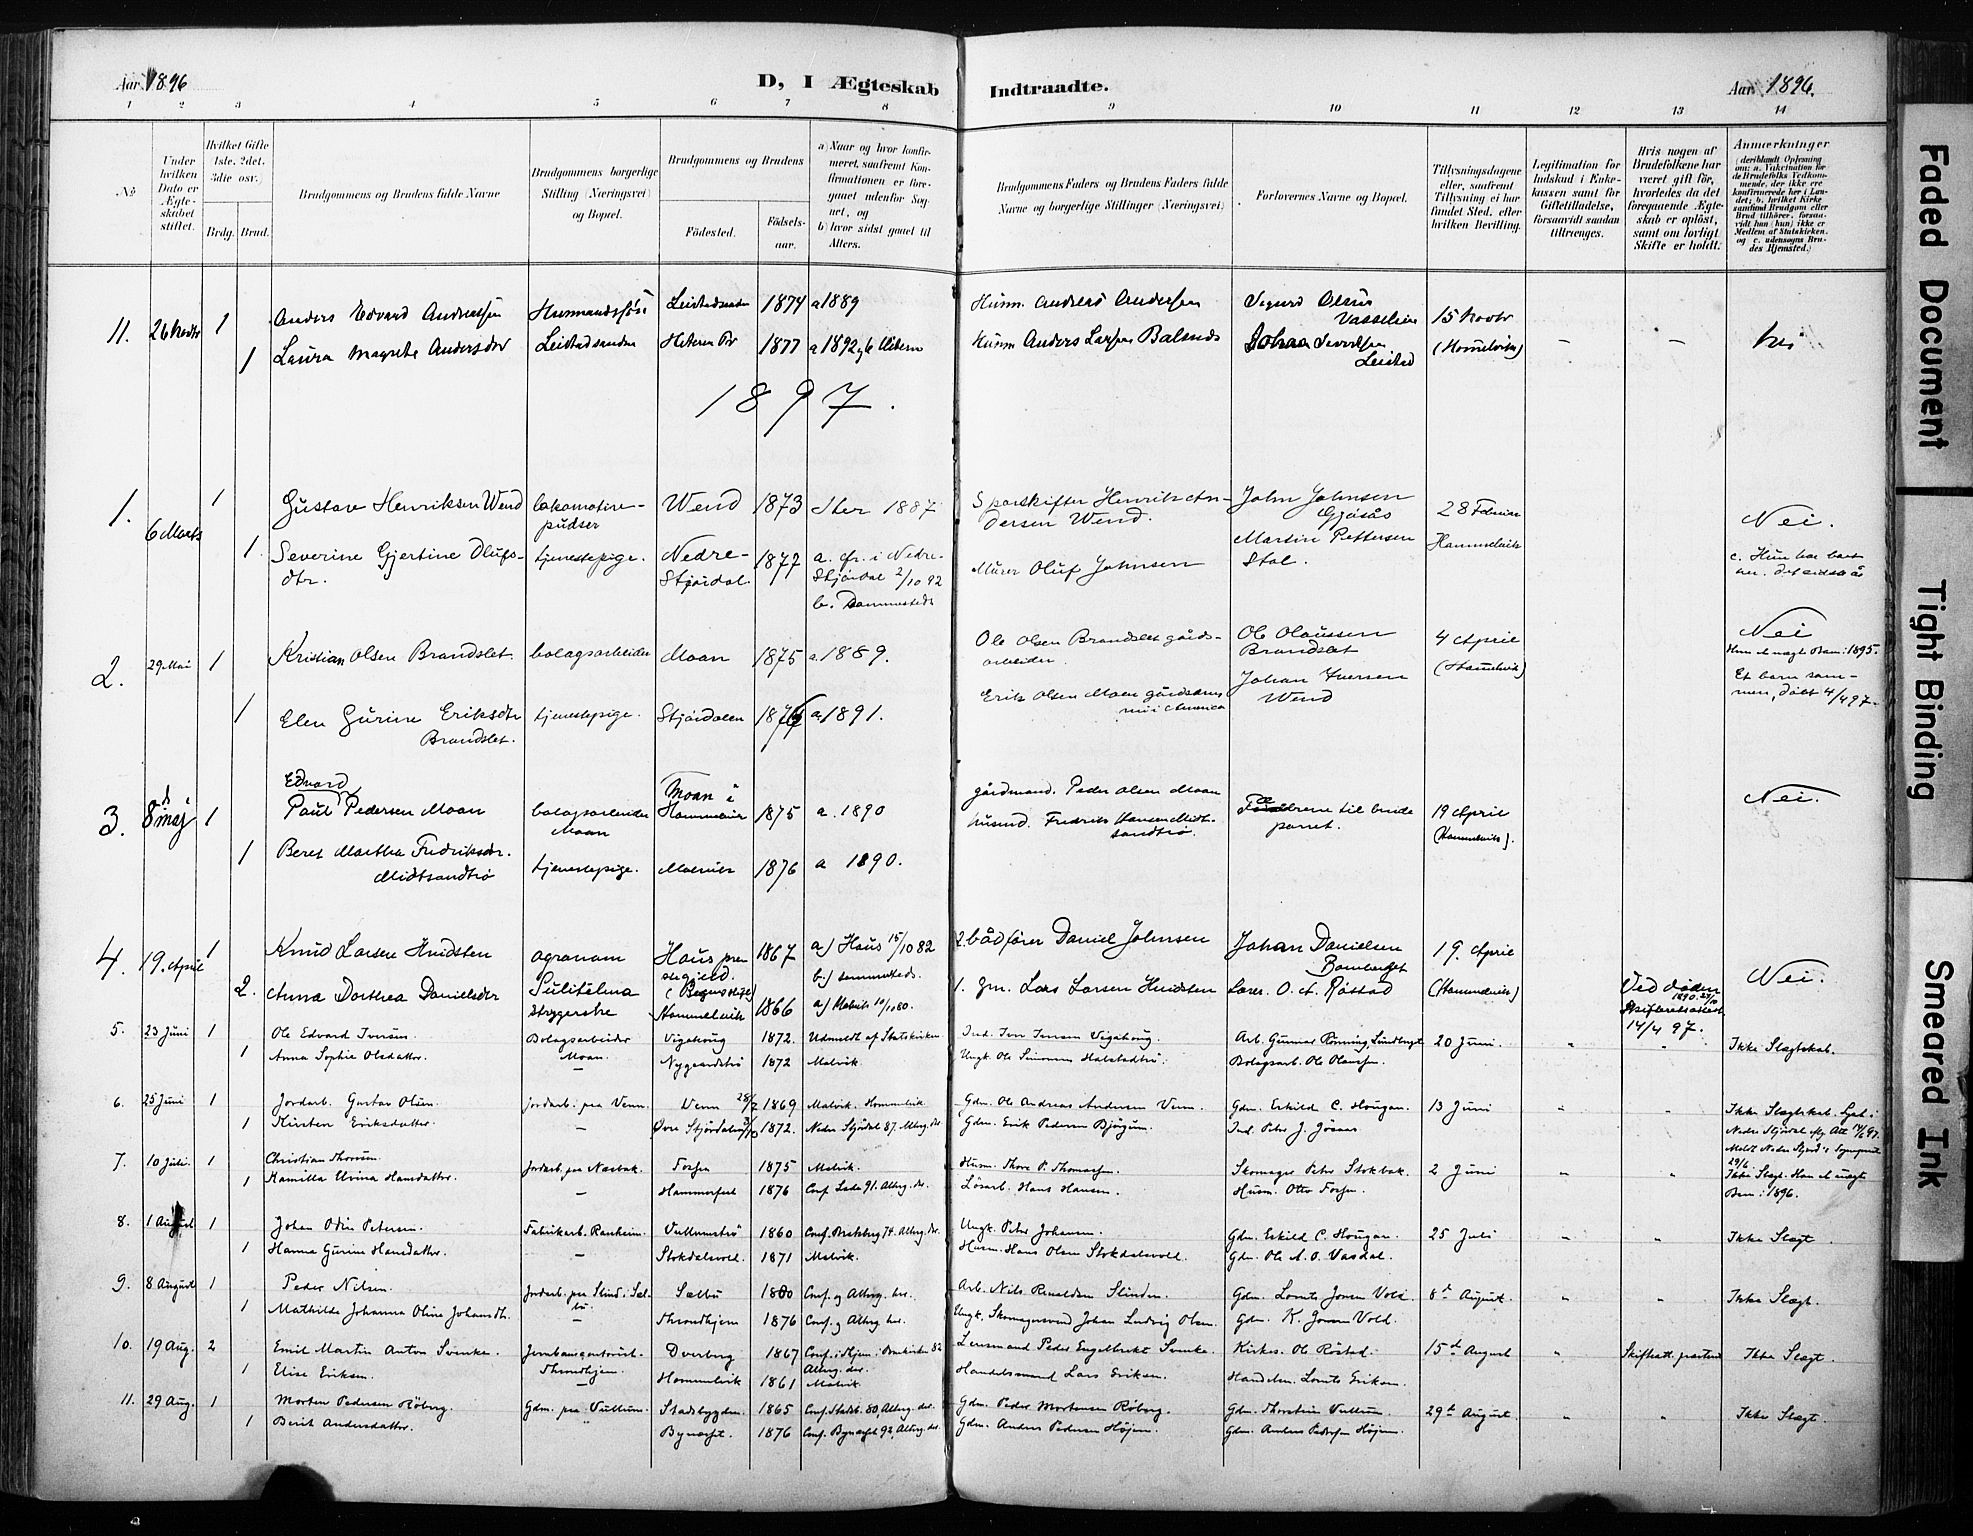 Aar 1896
D, I Ægteskab
Indtraadte.
Aar 1896.
1 2 3 4 5 6 7 8 9 10 11 12 13 14
No.
Under hvilken Dato er Ægteskabet stiftet.
Hvilket Gifte 1ste, 2det, 3die osv.)
Brdg. Brud.
Brudgommens og Brudens fulde Navne
Brudgommens borgerlige Stilling (Næringsvei) og Bopæl.
Brudgommens og Brudens
Fødested.
Fødsels-aar.
a) Naar og hvor konfirmeret, saafremt Konfirmationen er foregaaet udenfor Sognet, og
b) hvor sidst gaaet til Alters.
Brudgommens Faders og Brudens Faders fulde Navne og borgerlige Stillinger (Næringsvei)
Forlovernes Navne og Bopæl.
Tillysningsdagene eller, saafremt Tillysning ei har fundet Sted, efter hvilken Bevilling.
Legitimation for Indskud i Enkekassen samt for Giftetilladelse, forsaavidt saadan tiltrænges.
Hvis nogen af Brudefolkene har været gift før, hvorledes da det foregaaende Ægteskab er opløst, samt om lovligt Skifte er holdt.
Anmærkninger
11. 26 Novbr 1 Anders Edvard Andreassen 1874 a 1889 Husm. Andreas Andersen Sigurd 15 Novbr
1 Laura Magrete Andersdtr Leistadsanden 1877 a 1892 Husm Anders Larsen Johan Leistad (Hommelviken) – –
1897.
1. 6 Marts 1 Gustav Henriksen Wend Lokomotivpudser Wend 1873 1887 Sporskifter Henrik Andersen Wend. John Johnsen Gjøsås 28 Februar Nei.
1. Severine Gjertine Olufsdtr. tjenestepige. Nedre-Stjørdal. 1877 a. i Nedre-Stjørdal 2/10 92 b. Sammesteds Murer Oluf Johnsen Martin Pettersen Stal. Hommelvik
2. 29 Mai 1 Kristian Olsen Brandslet. bolagsarbeider Moan 1875 a. 1889. Ole Olsen Brandslet gårdsarbeider. Ole Olaussen Brandslet 4 April (Hommelvik) Nei
1 Elen Gurine Eriksdtr Brandslet. tjenestepige. Stjørdalen 1876 a. 1891. Erik Olsen Moan nu i America Johan Iversen Wend Et barn sammen, døbt 4/4 97.
3. 8de maj 1 Edvard Paul Pedersen Moan bolagsarbeider Moan Moan i Hommelvik 1875 a. 1890 gårdmand. Peder Olsen Moan Forældrene til brudeparret. 19 April (Hommelvik). Nei.
1 Beret Martha Fredriksdtr. Midtsandtrø tjenestepige. Malvik 1876 a 1890. husmd. Fredrik Hansen Midtsandtrø.
4. 19. April 1 Knud Larsen Hundsten agronom Sulitelma Haus præstegjeld. 1867 a) Haus 15/10 82 b.) sammesteds. 2. bådfører Daniel Johnsen Johan Danielsen 19. April Nei.
2. Anna Dorthea Danielsdtr strygerske Hommelvik 1866 a) Malvik 10/10 80. 1. Gm. Lars Larsen Hundsten Lærer. O. A. Røstad (Hommelvik) Ved døden 1890. 14/4 97.
5. 23 Juni 1 Ole Edvard Iversen Bolagsarbeider Moan. Vigahaug 1872. Udmeldt af Statskirken Ind. Iver Iversen Vigahaug. Arb. Gunnar Rønning, 20 Juni. " " Ikke Slægtskab.
1 Anna Sophie Olsdatter. – 1872 Malvik. Ungk. Ole Simonsen Halstadtrø. Bolagsarb. Ole Olaussen.
6. 25 Juni 1 Jordarb. Gustav Olsen. Jordarb. paa Venn. Venn 28/7 1869 Malvik. Hommelvik Gdm. Ole Andreas Andersen Venn. Gdm. Eskild C. Hougan. 13 Juni " " Ikke Slægtskab.
1 Kirsten Eriksdatter. – Øvre Stjørdalen 1872. Nedre Stjørdal 87. Gdm. Erik Pedersen Ind. Peter J. Jøsaas
7. 10 Juli. 1 Christian Thorsen. Jordarb. paa Næsbak. Torfen 1875 Malvik. Husm. Thore P. Thomassen. Skomager Peter Stokbak. 2 Juni " "
1 Kamilla Uvina Hansdatter. – Hammerfest 1876 Conf. Lade 91. Alterg. do. Løsarb. Hans Hansen. Husm. Otto Torfen. Ikke Slægt. Barn: 1896.
8. 1 August 1 Johan Odin Petersen. Fabrikarb. Ranheim. Vullumstrø 1860 Conf. Bratsberg 74. Alterg. do. Ungk. Peter Johansen. Gdm. Eskild C. Hougan. 25 Juli " " Ikke Slægt
1 Hanna Gurine Hansdatter. – Stokdalsvold. 1871 Malvik. Husm. Hans Olsen Stokdalsvold. Gdm. Ole A. O. Vasdal.
9. 8 August 1 Peder Nilsen. Jordarb. paa Slind i Sælbu. Sælbu 1880 Conf. og Alterg. her. Arb. Nils Slinden. Gdm. Lorntz Jonsen Vold. 8de August. " " Ikke Slægt.
1 Mathilde Johanna Oline Johansdtr. – Throndhjem 1876 Conf. og Alterg. her. Ungk. Skomagersvend Johan Ludvig Olsen. Gdm. K. Jonsen Vold.
10. 19 Aug. 2 Emil Martin Anton Svinke. Throndhjem. Dverberg 1867 Lensmand Peder Engelbrekt Svinke. Kirkes. Ole Røstad. 15de August " Ikke Slægt.
1 Elise Eriksen. – Hommelvik 1861 Malvik. Handelsmand Lars Eriksen. Handelsm. Lorntz Eriksen.
11. 29 Aug. 1 Morten Pedersen Røberg. Gdm. paa Vullum. Stadsbygden. 1865 Conf. Stadsb. 80, Alterg. der. Gdm. Peder Mortensen Røberg. Gdm. Thorstein Vullum. 29de August. " " Ikke Slægt.
1 Berit Andersdatter. Bynæsset. 1876 Conf. Bynæsset 92, Alterg. der. Gdm. Anders Pedersen Højem. Gdm. Anders Pedersen Højem.
Faded Document
Tight Binding
Smeared Ink